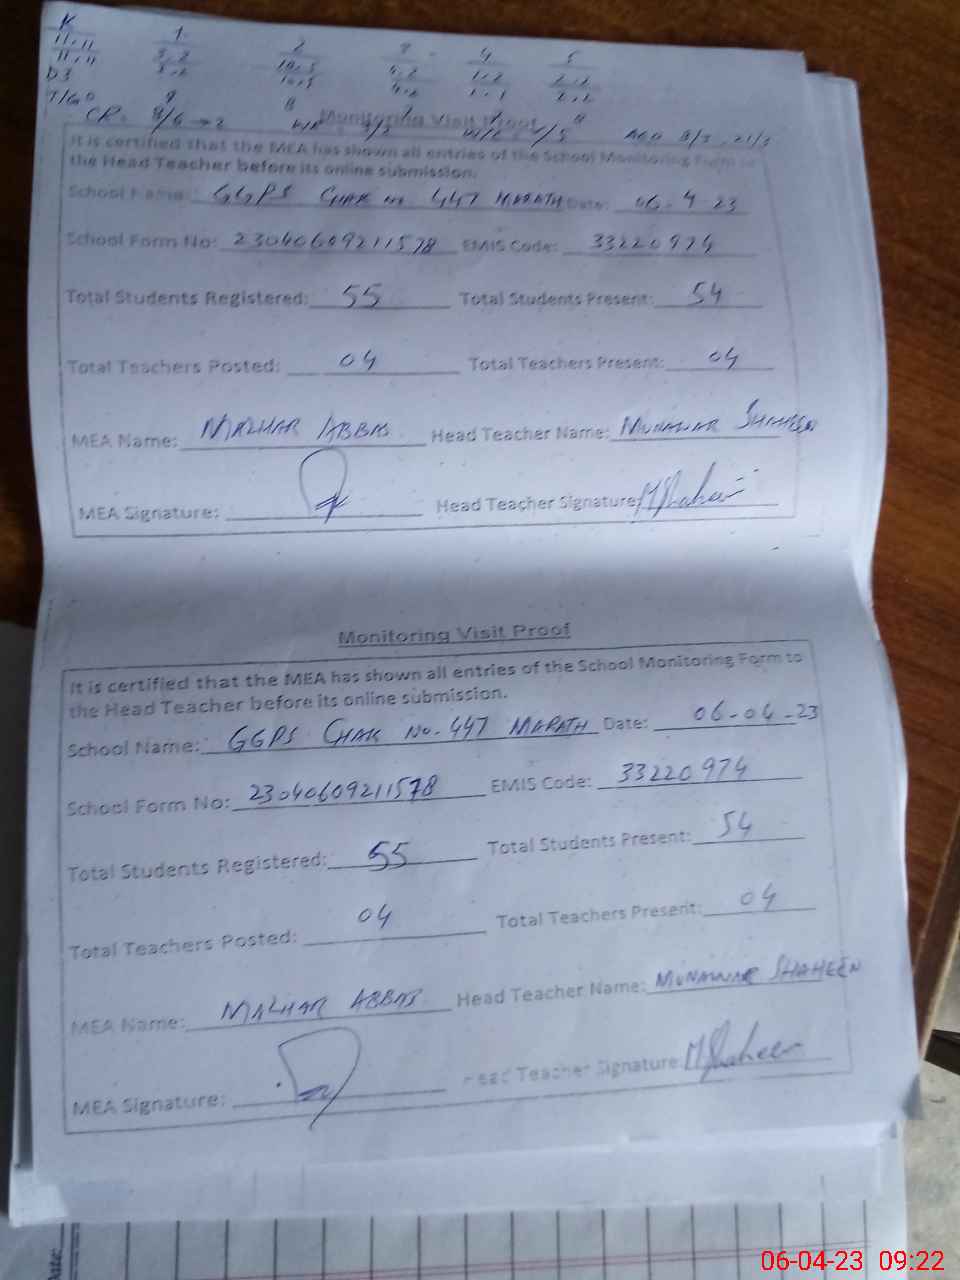 K 1 2 3 4 5
11.11 3.2 10.5 4.2 1.2 2.2
11.11 3.2 10.5 4.2 1.1 2.2
Monitoring Visit Proof
It is certified that the MEA has shown all entries of the School Monitoring Form to
the Head Teacher before its online submission.
School Name: GGPS CHAK NO. 447 MARATH Date: 06-4-23
School Form No: 23040609211578 EMIS Code: 33220974
Total Students Registered: 55 Total Students Present: 54
Total Teachers Posted: 04 Total Teachers Present: 04
MEA Name: MAZHAR ABBAS Head Teacher Name: MUNAWAR SHAHEEN
MEA Signature: Head Teacher Signature: MShaheen
Monitoring Visit Proof
It is certified that the MEA has shown all entries of the School Monitoring Form to
the Head Teacher before its online submission.
School Name: GGPS CHAK NO. 447 MARATH Date: 06-04-23
School Form No: 23040609211578 EMIS Code: 33220974
Total Students Registered: 55 Total Students Present: 54
Total Teachers Posted: 04 Total Teachers Present: 04
MEA Name: MAZHAR ABBAS Head Teacher Name: MUNAWAR SHAHEEN
MEA Signature: Head Teacher Signature: MShaheen
06-04-23 09:22